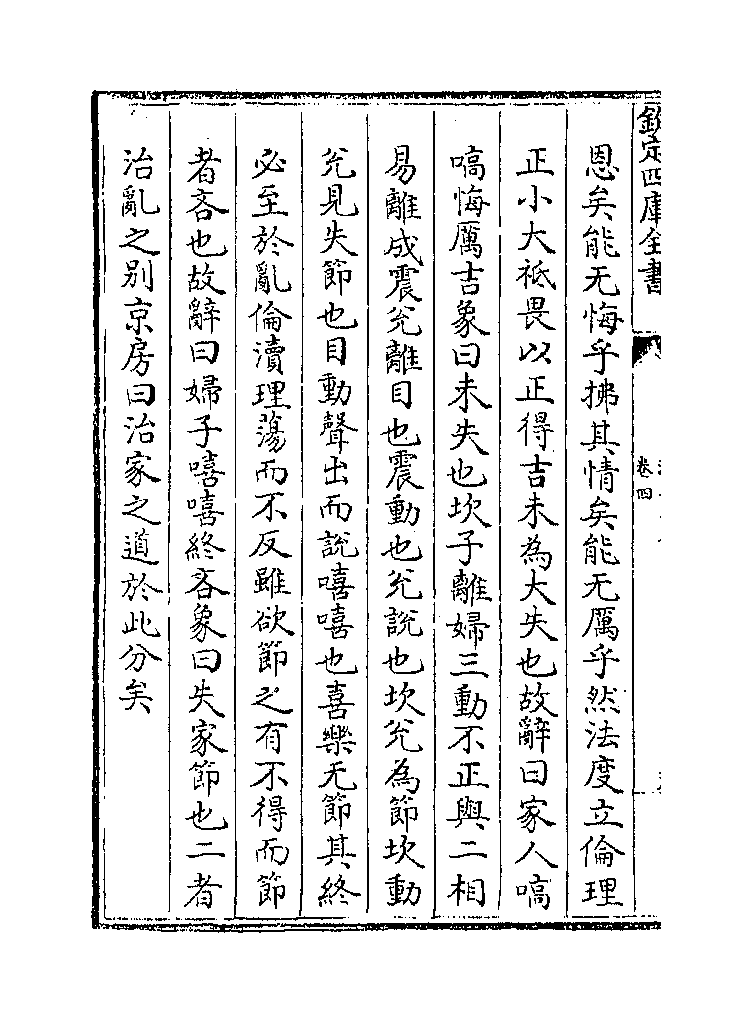 欽定四庫全書
卷四
恩矣能无悔乎拂其情矣能无厲乎然法度立倫理
正小大祗畏以正得吉未為大失也故辭曰家人嗃
嗃悔厲吉象曰未失也坎子離婦三動不正與二相
易離成震兊離目也震動也兊說也坎兊為節坎動
兊見失節也目動聲出而說嘻嘻也喜樂无節其終
必至於亂倫瀆理蕩而不反雖欲節之有不得而節
者吝也故辭曰婦子嘻嘻終吝象曰失家節也二者
治亂之别京房曰治家之道於此分矣